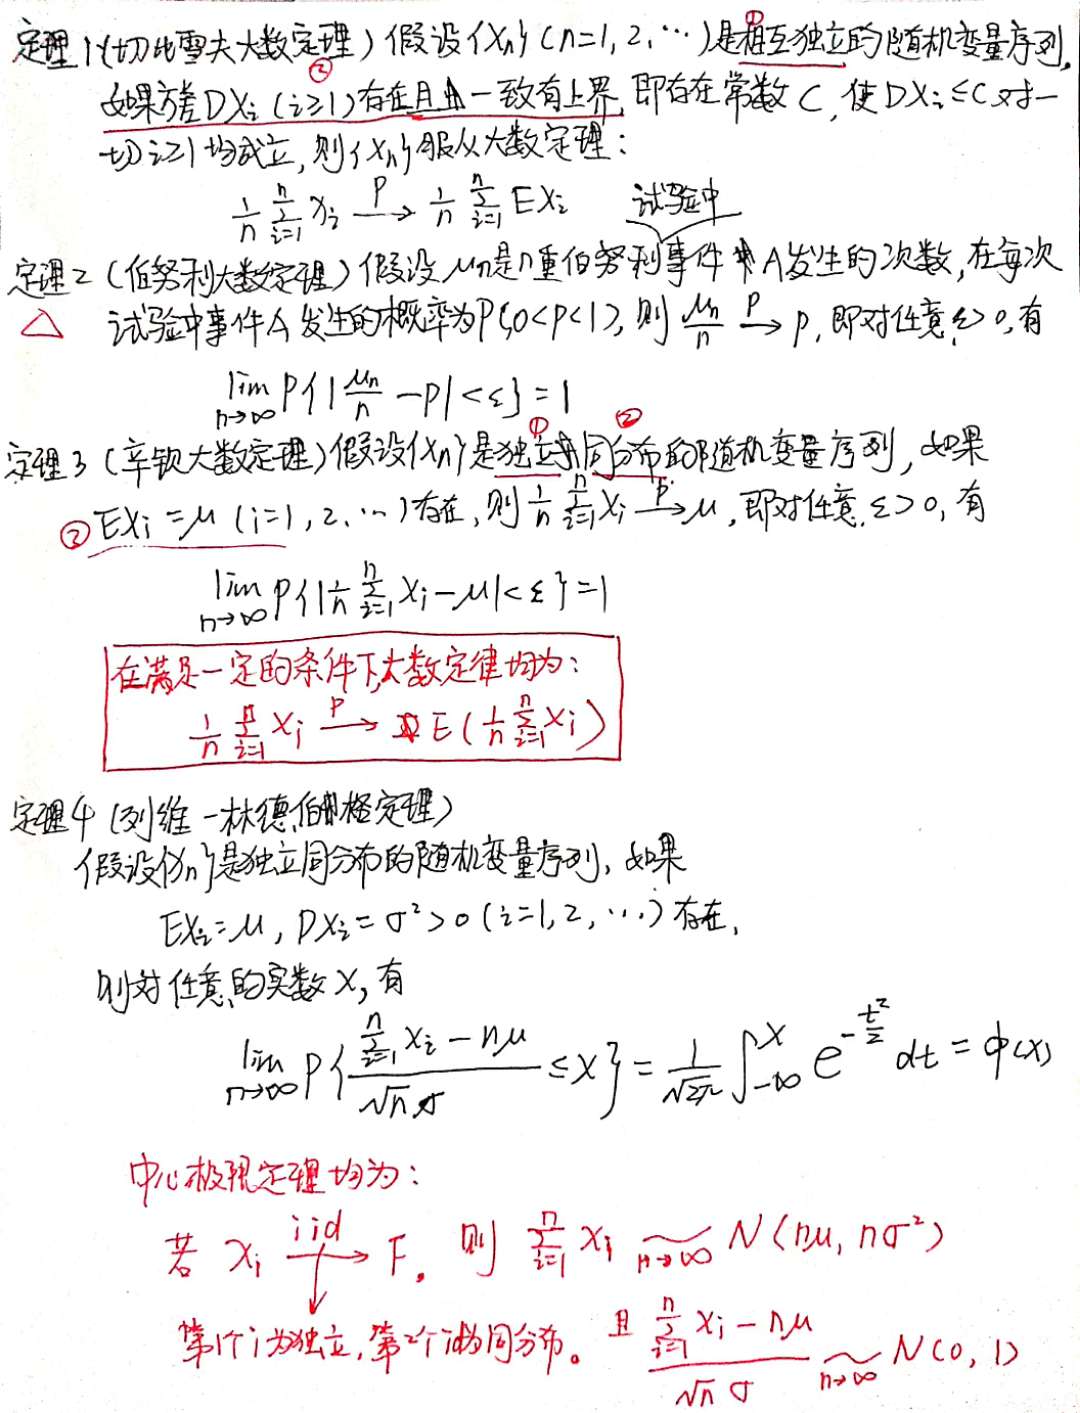 定理1(切比雪夫大数定理)假设{Xn}(n=1,2,…)是①相互独立的随机变量序列,
②如果方差DXi(i≥1)存在且一致有上界,即存在常数C,使DXi≤C对一
切i≥1均成立,则{Xn}服从大数定理:
1/n ∑_{i=1}^{n} Xi —P→ 1/n ∑_{i=1}^{n} EXi
试验中
定理2(伯努利大数定理)假设μn是n重伯努利事件A发生的次数,在每次
△ 试验中事件A发生的概率为P(0<P<1),则 μn/n —P→ P,即对任意ε>0,有
lim_{n→∞} P{|μn/n − P|<ε}=1
定理3(辛钦大数定理)假设{Xn}是①独立②同分布的随机变量序列,如果
③EXi=μ(i=1,2,…)存在,则 1/n ∑_{i=1}^{n} Xi —P→ μ,即对任意ε>0,有
lim_{n→∞} P{|1/n ∑_{i=1}^{n} Xi−μ|<ε}=1
在满足一定的条件下,大数定律均为:
1/n ∑_{i=1}^{n} Xi —P→ E(1/n ∑_{i=1}^{n} Xi)
定理4(列维-林德伯格定理)
假设{Xn}是独立同分布的随机变量序列,如果
EXi=μ, DXi=σ²>0(i=1,2,…)存在,
则对任意的实数X,有
lim_{n→∞} P{(∑_{i=1}^{n} Xi − nμ)/(√n σ) ≤X}= 1/√2π ∫_{-∞}^{X} e^{-t²/2} dt=Φ(X)
中心极限定理均为:
若 Xi —iid→ F. 则 ∑_{i=1}^{n} Xi ~_{n→∞} N(nμ, nσ²)
第1个i为独立,第2个i为同分布。 且 (∑_{i=1}^{n} Xi − nμ)/(√n σ) ~_{n→∞} N(0,1)